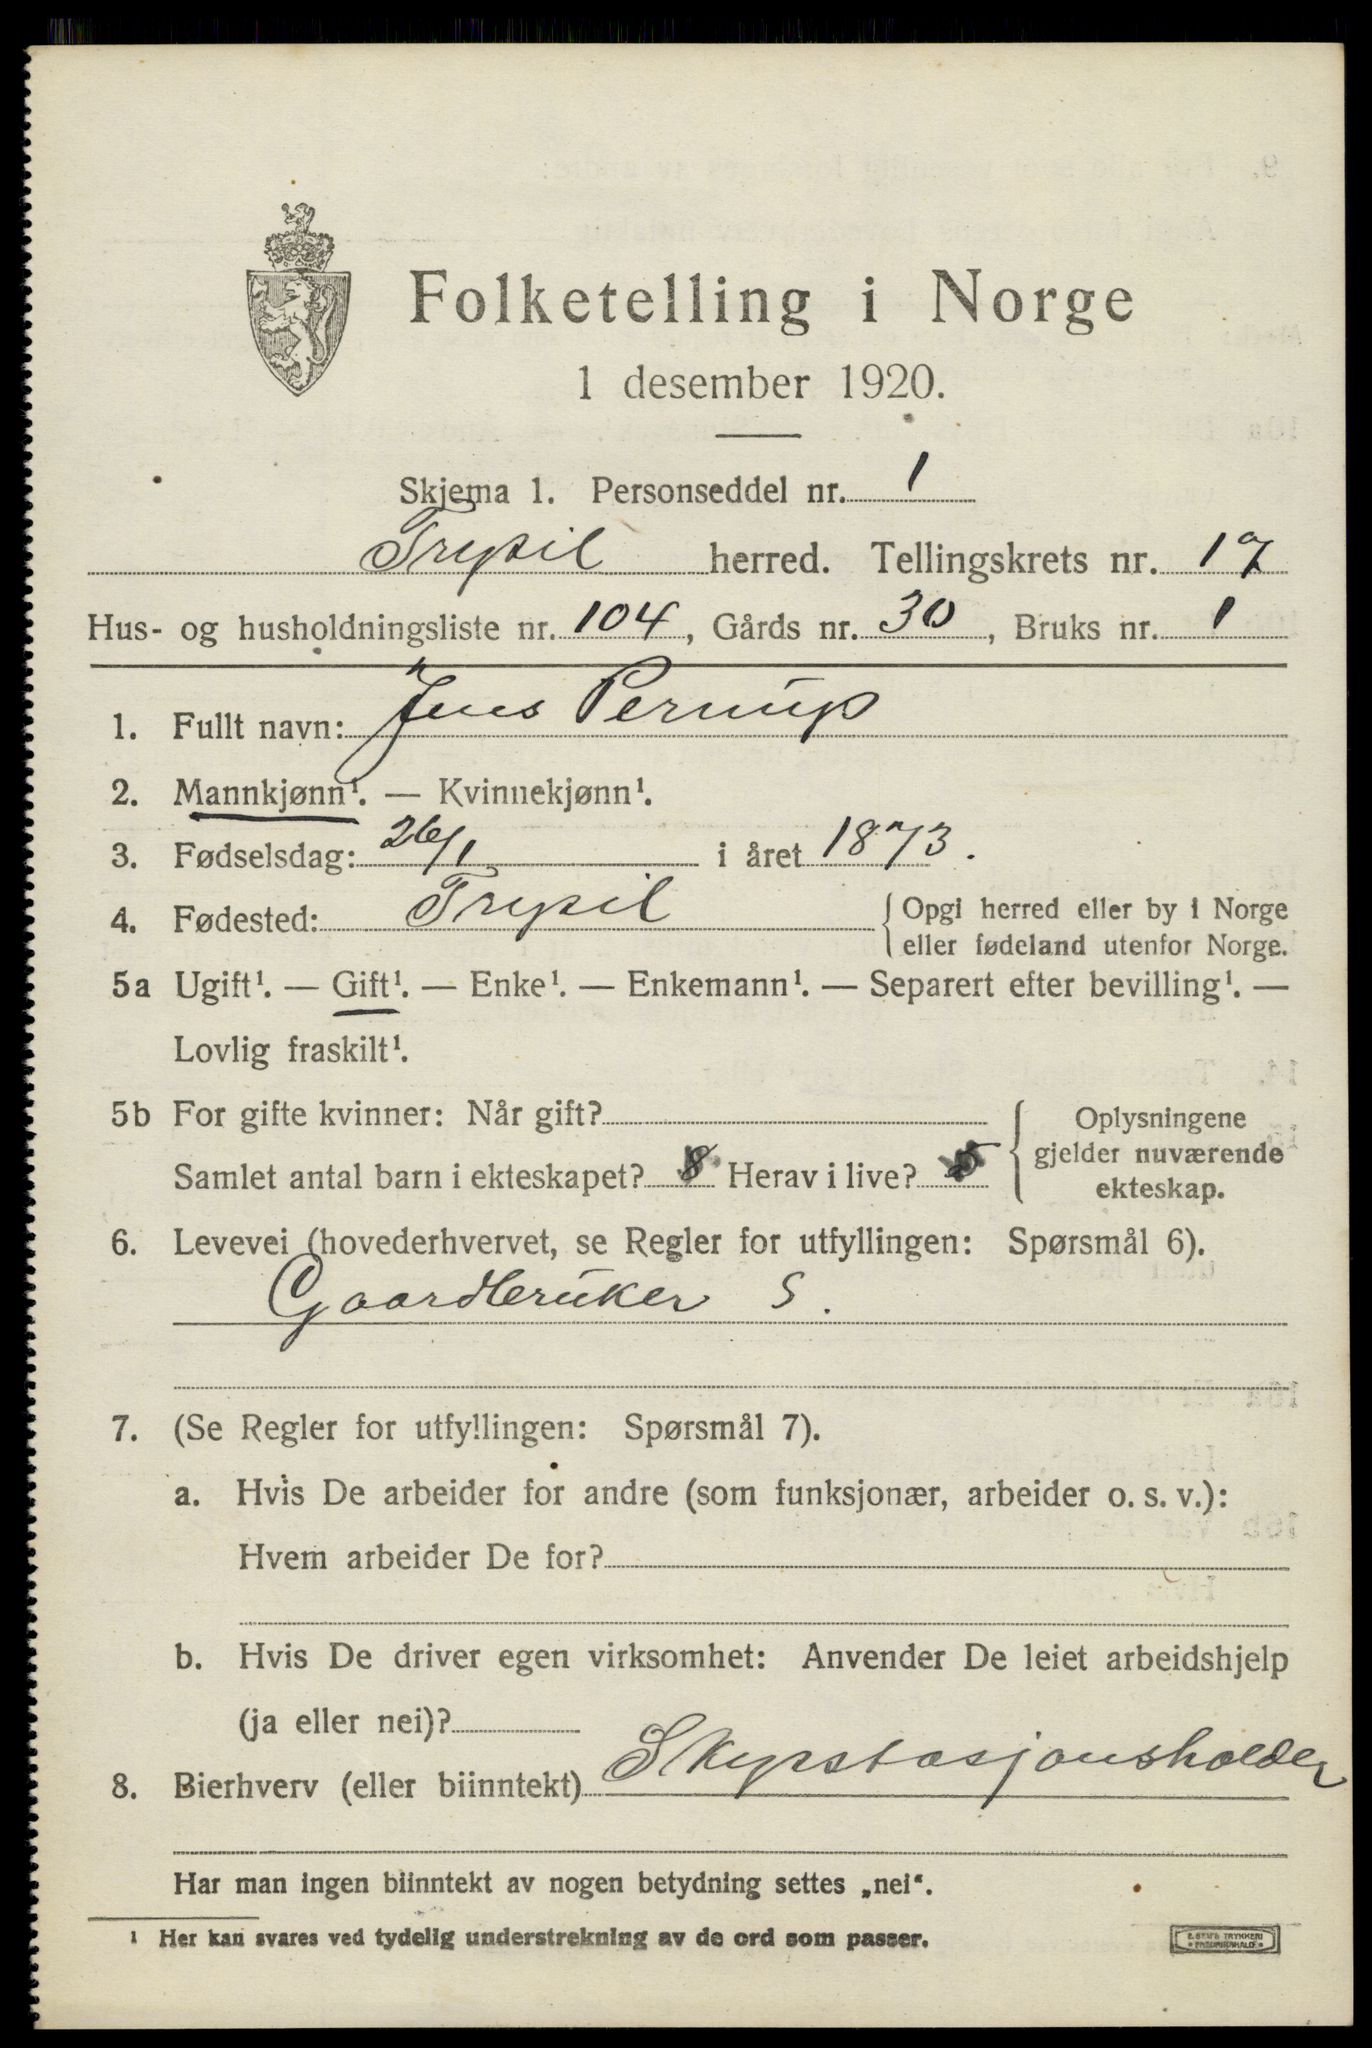 Folketelling i Norge
1 desember 1920.
Skjema 1. Personseddel nr. 1
Trysil herred. Tellingskrets nr. 17
Hus- og husholdningsliste nr. 104, Gårds nr. 30, Bruks nr. 1
1. Fullt navn: Jens Pernup
2. Mannkjønn¹. — Kvinnekjønn¹.
3. Fødselsdag: 26/1 i året 1873.
4. Fødested: Trysil {Opgi herred eller by i Norge
eller fødeland utenfor Norge.
5a Ugift¹. — Gift¹. — Enke¹. — Enkemann¹. — Separert efter bevilling¹. —
Lovlig fraskilt¹.
5b For gifte kvinner: Når gift?
Samlet antal barn i ekteskapet? 8 Herav i live? 5
Oplysningene
gjelder nuværende
ekteskap.
6. Levevei (hovederhvervet, se Regler for utfyllingen: Spørsmål 6).
Gaardbruker S.
7. (Se Regler for utfyllingen: Spørsmål 7).
a. Hvis De arbeider for andre (som funksjonær, arbeider o. s. v.):
Hvem arbeider De for?
b. Hvis De driver egen virksomhet: Anvender De leiet arbeidshjelp
(ja eller nei)?
8. Bierhverv (eller biinntekt) Skysstasjonsholder
Har man ingen biinntekt av nogen betydning settes „nei“.
¹ Her kan svares ved tydelig understrekning av de ord som passer.